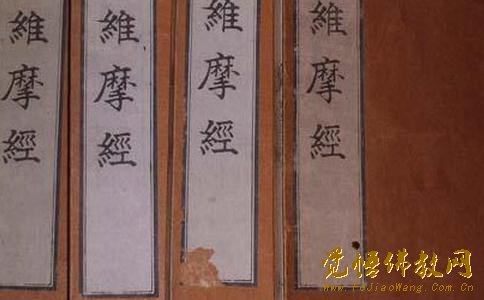 維摩經
維摩經
維摩經
維摩經
觉悟佛教网
www.FoJiaoWang.Com.Cn